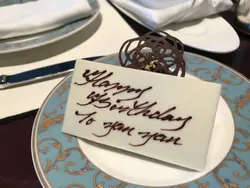 Happy
Birthday
to yan yan